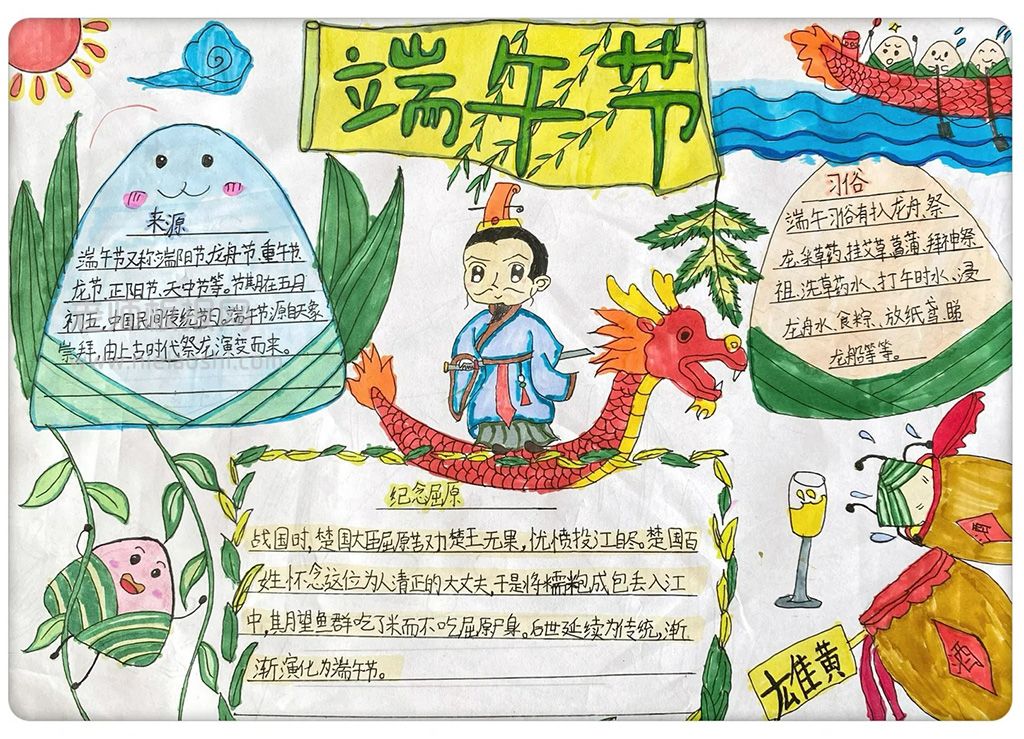 端午节
来源
端午节又称端阳节、龙舟节、重午节、
龙节、正阳节、天中节等。节期在五月
初五,中国民间传统节日。端午节源自天象
崇拜,由上古时代祭龙演变而来。
习俗
端午习俗有扒龙舟、祭
龙、采草药、挂艾草、菖蒲、拜神祭
祖、洗草药水、打午时水、浸
龙舟水、食粽、放纸鸢、睇
龙船等等。
纪念屈原
战国时,楚国大臣屈原劝楚王无果,忧愤投江自尽。楚国百
姓怀念这位为人清正的大丈夫,于是将糯粑成包丢入江
中,其月望鱼群吃了米而不吃屈原尸身。后世延续为传统,渐
渐演化为端午节。
酒
酒
雄黄